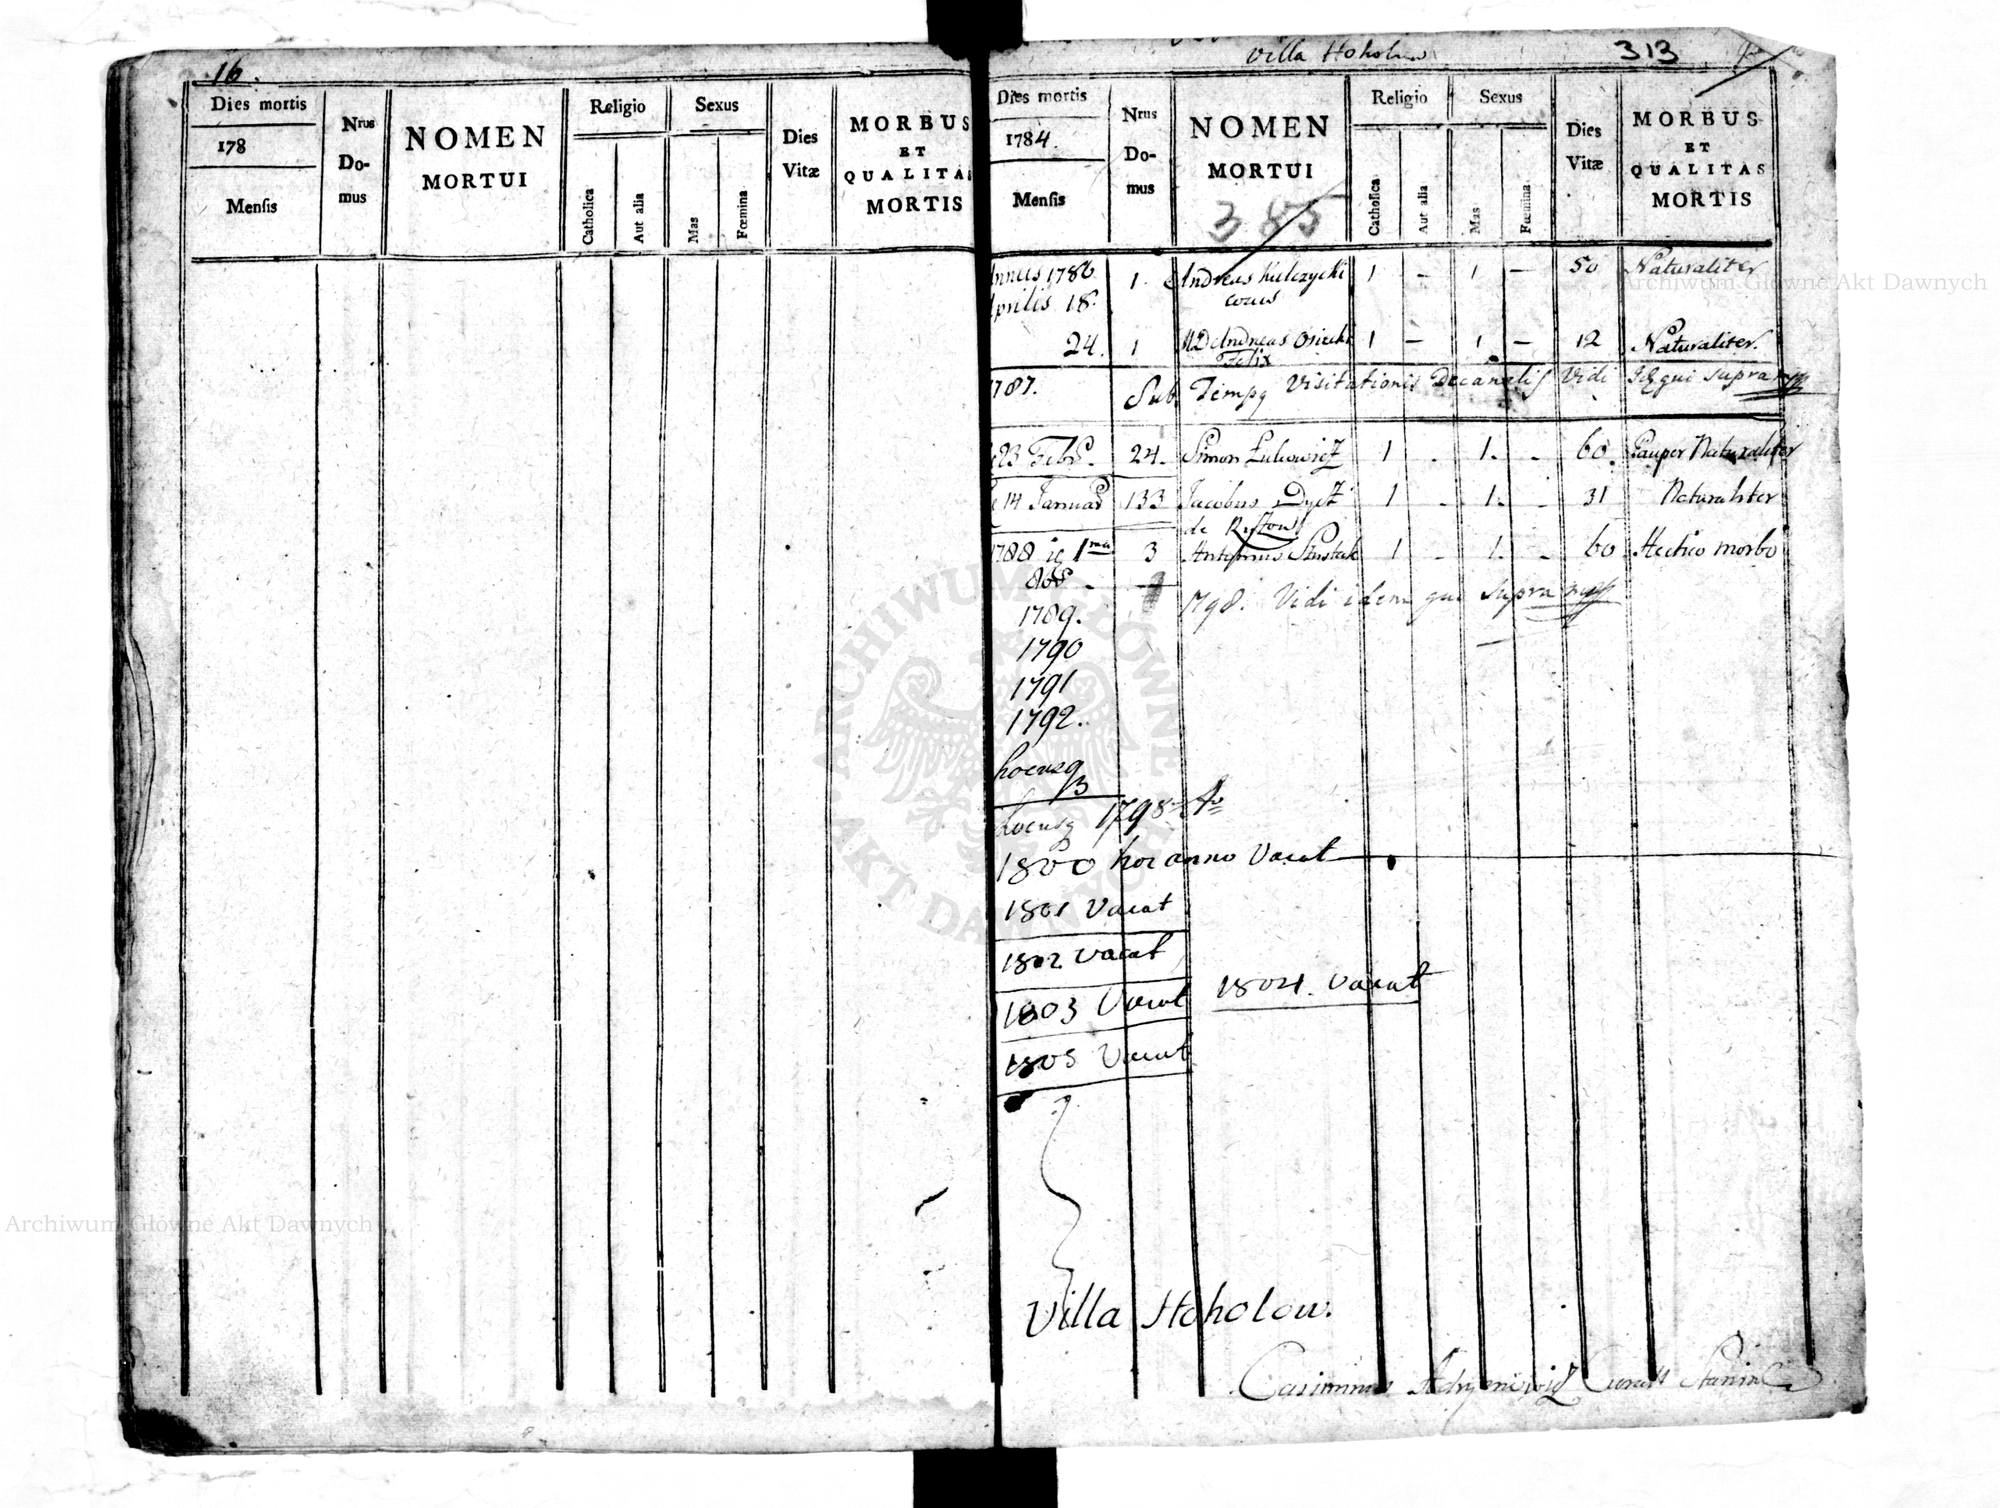 16.
Dies mortis
178
Mensis
Nrus
Do-
mus
NOMEN
MORTUI
Religio
Catholica
Aut alia
Sexus
Mas
Fœmina
Dies
Vitæ
MORBUS
ET
QUALITAS
MORTIS
Villa Hoholow
313
Dies mortis
1784.
Mensis
Nrus
Do-
mus
NOMEN
MORTUI
385
Religio
Catholica
Aut alia
Sexus
Mas
Fœmina
Dies
Vitæ
MORBUS
ET
QUALITAS
MORTIS
Annus 1786 1. Andreas Kulczycki 1 - 1 - 50 Naturaliter
Aprilis 18.
24. 1 Andreas Osiecki 1 - 1 - 12 Naturaliter.
Felix
1787. Sub Tempq Visitationis Decanalis Vidi Idqui supra
23 Febr. 24. Simon 1 - 1. - 60. Pauper Naturaliter
14 Januar 133 Jacobus 1 - 1. - 31 Naturaliter
de
1788 1ma 3 Antonius 1 - 1. - 60 Hectico morbo
8bris -
1789.
1798. Vidi idem qui supra
1790
1791
1792.
hocusq
hocusq 1798
1800 hoc anno Vacat
1801 Vacat
1802 Vacat
1803 Vacat
1804. Vacat
1805 Vacat
Villa Hoholow.
Casimirus
Archiwum Główne Akt Dawnych
Archiwum Główne Akt Dawnych
ARCHIWUM GŁÓWNE AKT DAWNYCH